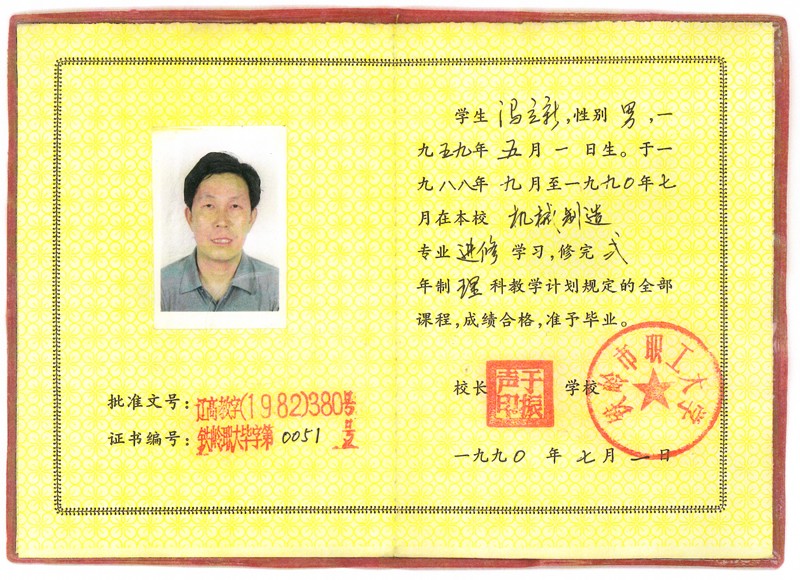 批准文号：辽高教字(1982)380号
证书编号：铁岭职大毕字第0051号
学生 冯立新，性别 男，一
九五九年 五 月 一 日生。于一
九八八年 九 月至一九九〇年七
月在本校 机械制造
专业 进修 学习，修完 弍
年制 理 科教学计划规定的全部
课程，成绩合格，准予毕业。
校长 于振声印 学校
铁岭市职工大学
一九九〇 年 七 月 二 日